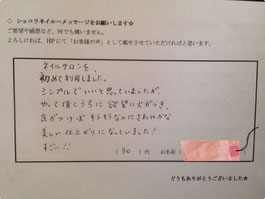 ◇ ショコラネイルへメッセージをお願いします☆
ご要望や感想など、何でも構いません。
よろしければ、HPにて「お客様の声」として載せさせていただければと思います。
ネイルサロンを、
初めて利用しました。
シンプルでいいと思っていましたが、
やって頂くうちに欲望に火がつき、
気がつけばキラキラなのにさわやかな
美しい仕上がりになっていました!
(30)代 お名前(
どうもありがとうございました☆